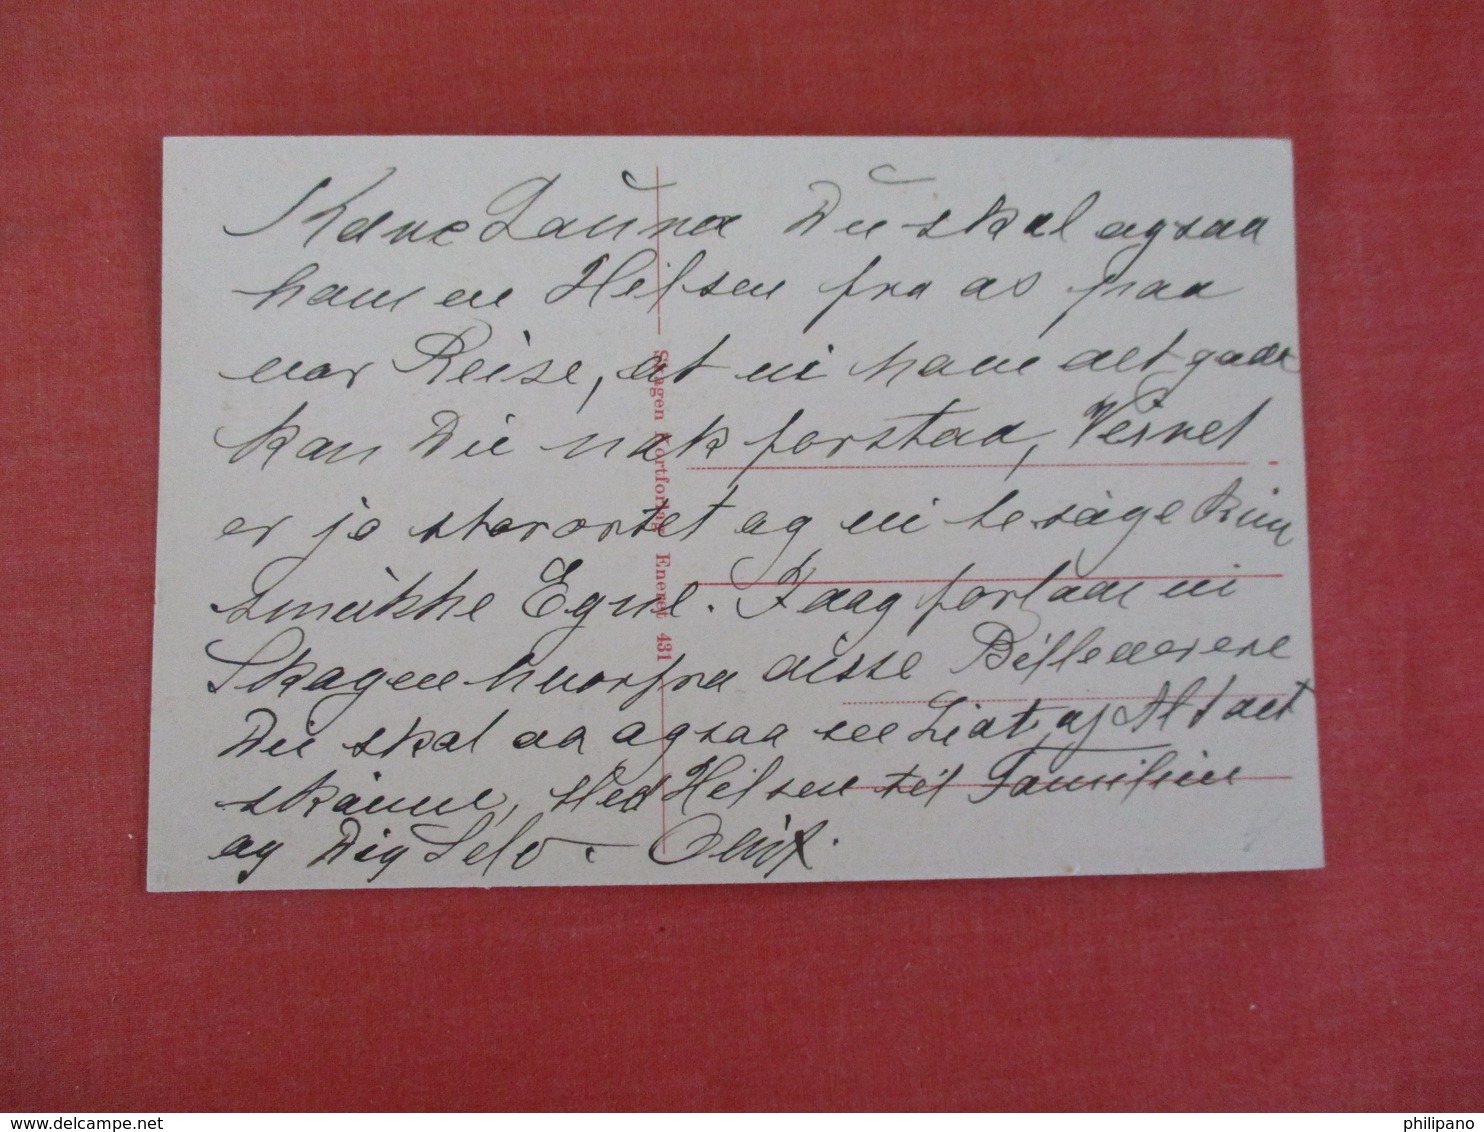 Kære Launa Du skal agsaa
have en Hilsen fra os paa
vor Reise, at vi have det godt
kan Du nok forstaa, Veiret
er jo storartet og vi besøge kun
smukke Egne. I dag forlade vi
Skagen hvorfra disse Billederene
Du skal da agsaa see Lidt af Alt det
skønne, Med Hilsen til Familien
og Dig Selv. —
Skagen Kortforlag Eneret 431
philipano
delcampe.net